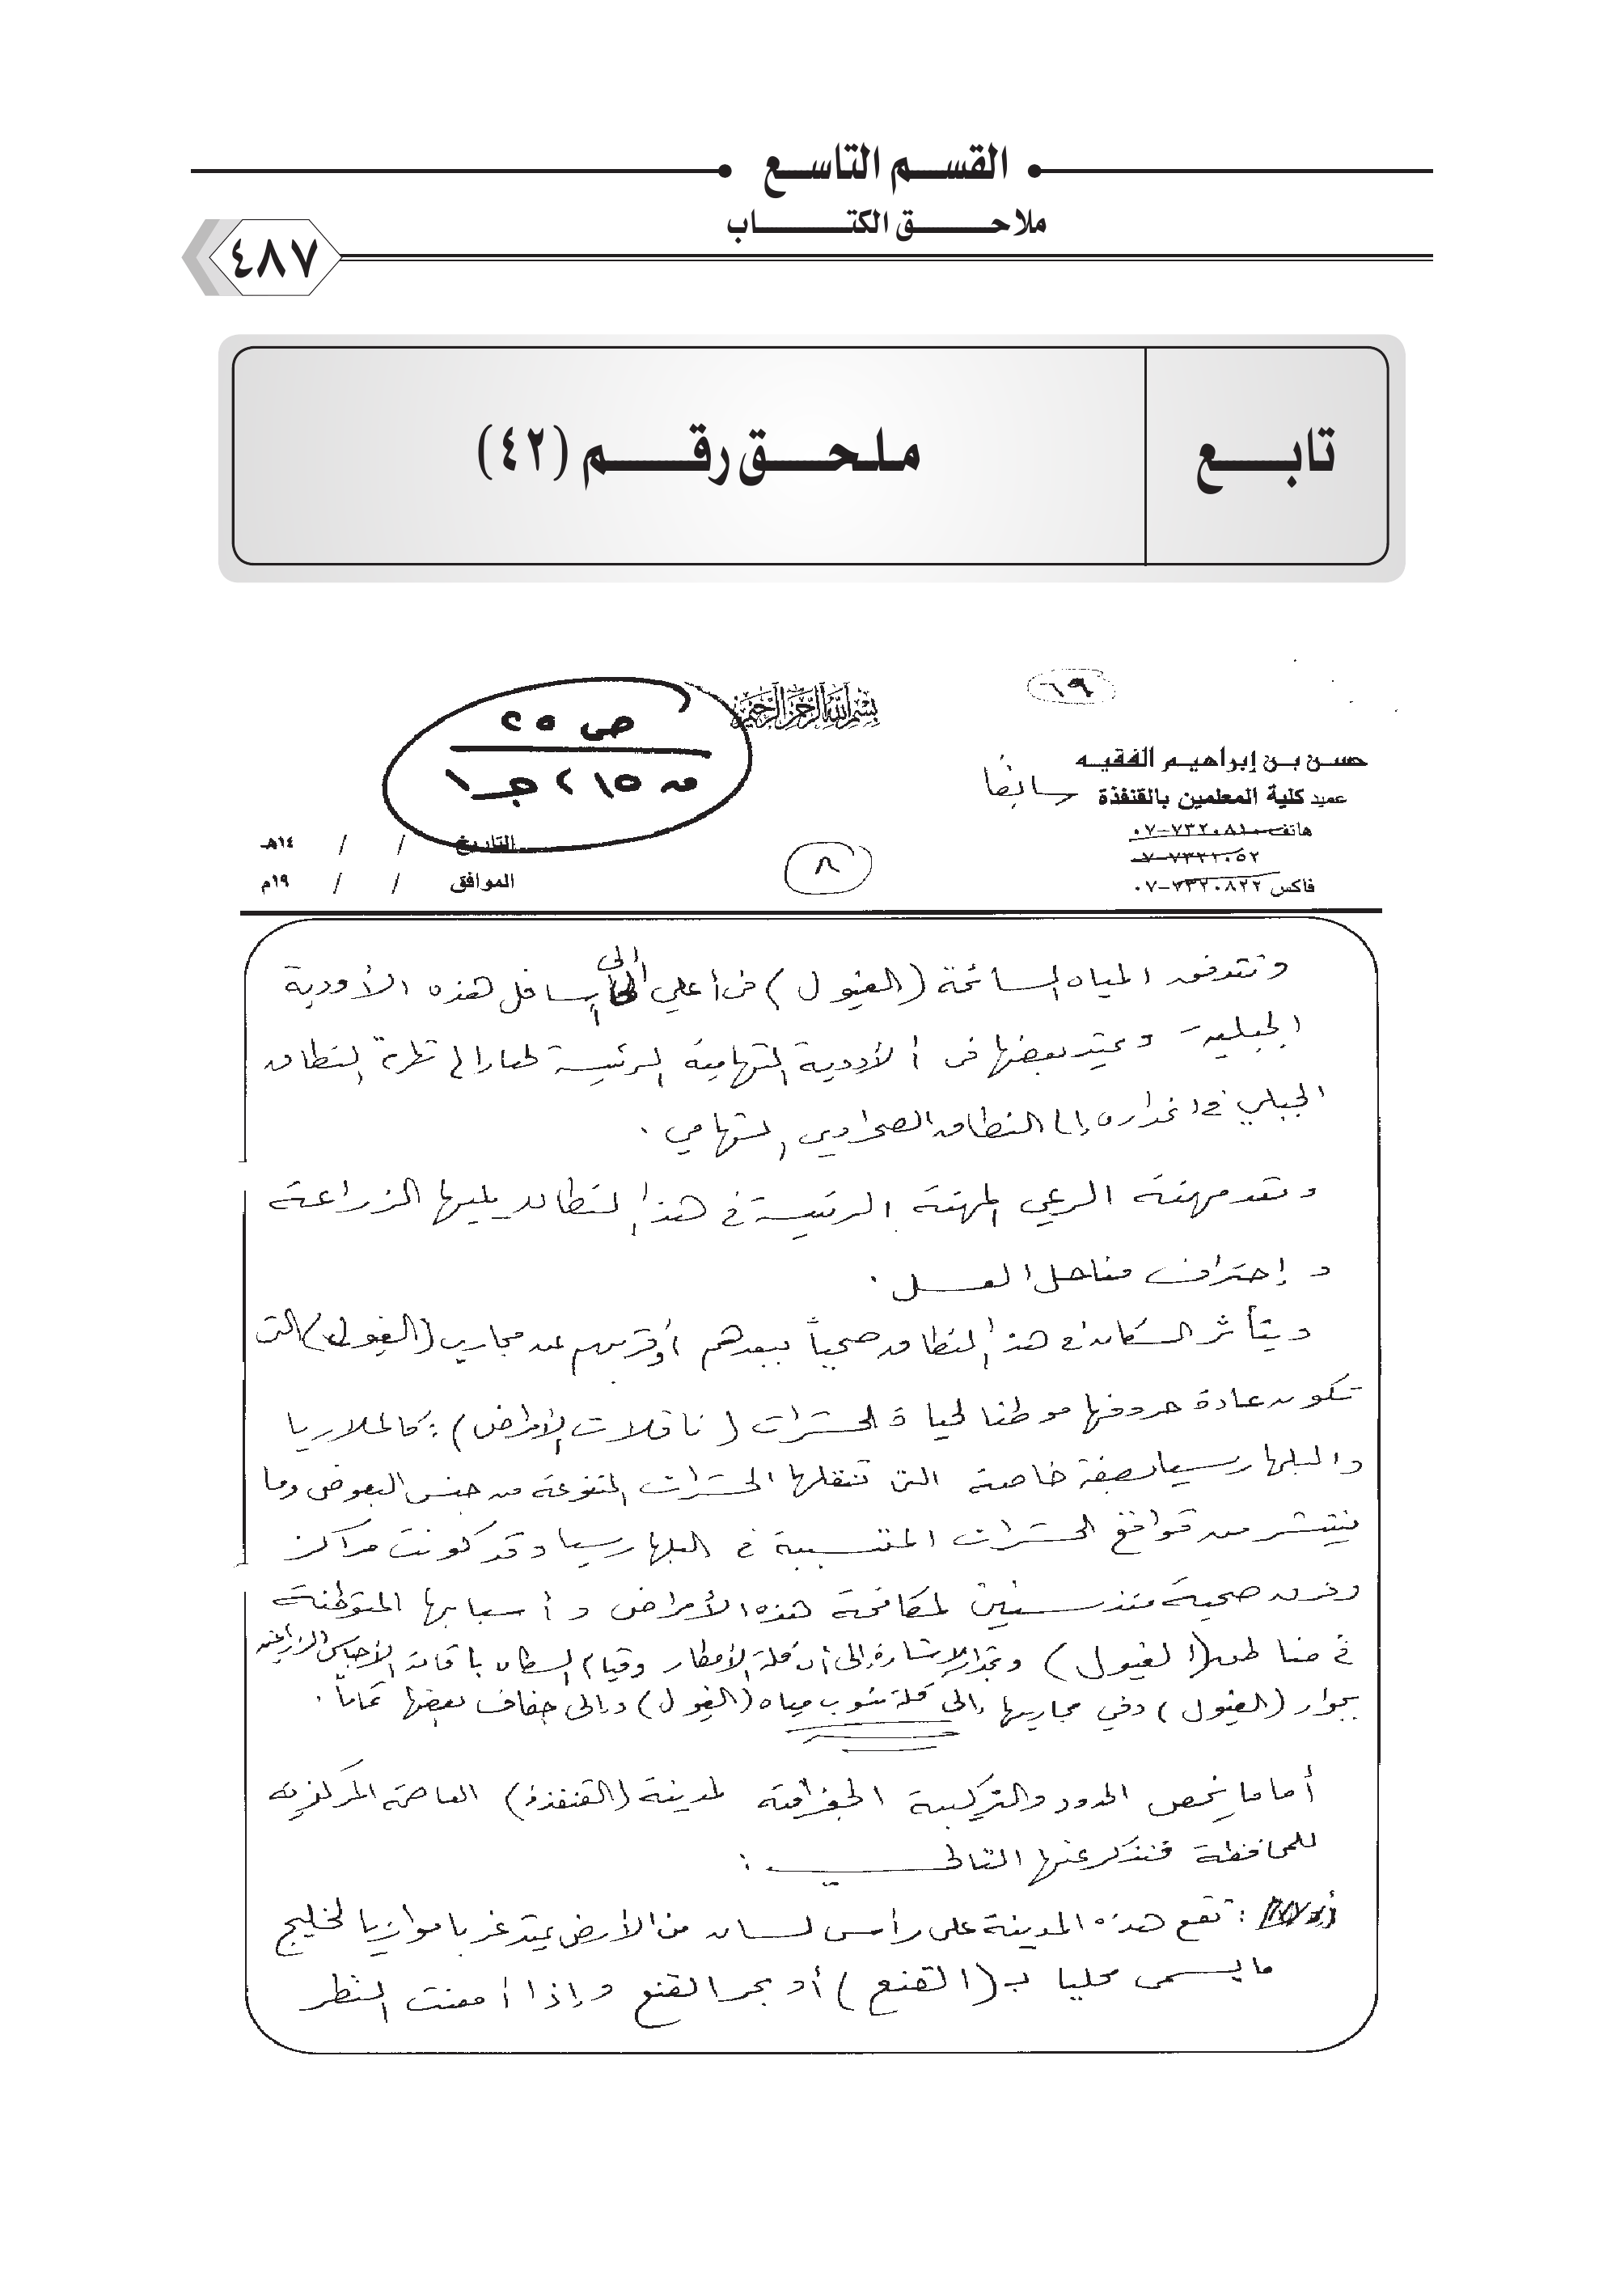 القسم التاسع
ملاحق الكتاب
٤٨٧
تابع
ملحق رقم (٤٢)
٦٩
بسم الله الرحمن الرحيم
ص ٢٥
من ٢١٥ جـ ١
حسن بن إبراهيم الفقيه
عميد كلية المعلمين بالقنفذة سابقاً
هاتف ٧٣٢٠٨١٠-٠٧
٧٣٢١٠٥٢-٧
فاكس ٧٣٢٠٨٢٢-٠٧
التاريخ / / ١٤هـ
الموافق / / ١٩م
٨
وتتدفق المياه السائحة (الغيول) في أعلي إلى أسافل هذه الأودية
الجبلية - ويمتد بعضها في الأودية التهامية الرئيسة النطاق
الجبلي في انحداره إلى النطاق الصحراوي التهامي .
وتعد مهنة الرعي المهنة الرئيسة في هذا النطاق يليها الزراعة
و إحتراف مناحل العسل .
ويتأثر السكان في هذا النطاق صحياً ببعدهم أو قربهم عن مجاري (الغيول) التي
تكون عادة حروفها موطنا لحياة الحشرات (ناقلات الأمراض) : كالملاريا
والبلهارسيا بصفة خاصة التي تنقلها الحشرات المتنوعة من جنس البعوض وما
ينتشر من قواقع الحشرات المتسببة في البلهارسيا وقد كونت مراكز
وفرق صحية منذ سنين لمكافحة هذه الأمراض و أسبابها المتوطنة
في مناطق (الغيول) وتجدر الإشارة إلى أن قلة الأمطار وقيام السكان باقامة الأحباس الزراعية
بجوار (الغيول) وفي مجاريها إلى قلة منسوب مياه (الغيول) وإلى جفاف بعضها تماماً .
أما ما يخص الحدود والتركيبة الجغرافية لمدينة (القنفذة) العاصمة المركزية
للمحافظة فنذكر عنها التالي :
أولاً : تقع هذه المدينة على رأس لسان من الأرض يمتد غربا موازيا لخليج
ما يسمى محليا بـ (القنع) أو بحر القنع وإذا أمعنت النظر